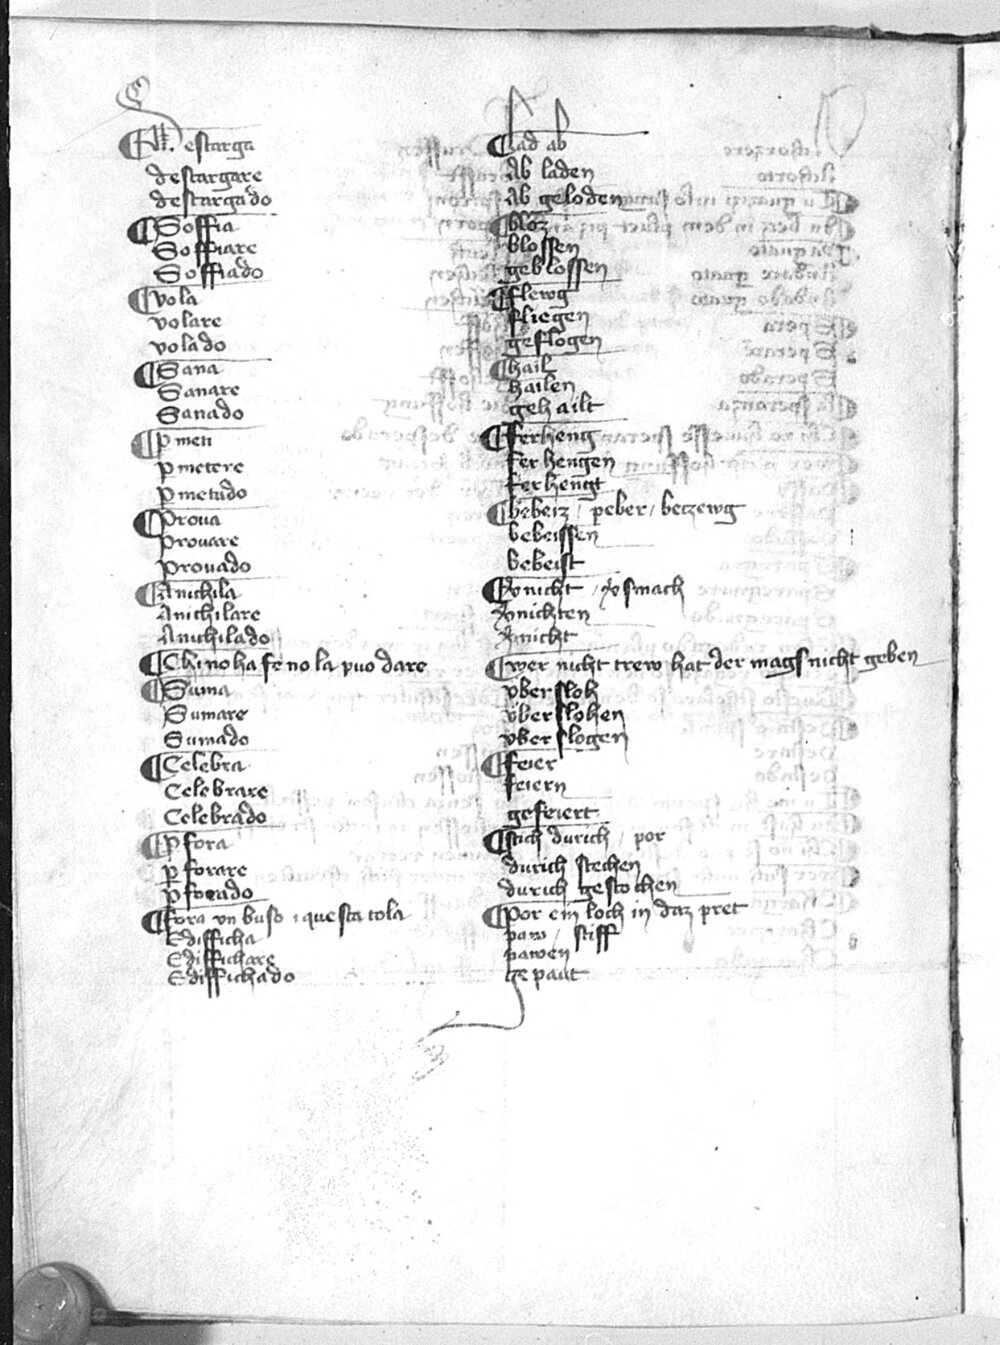 ¶ Destarga
destargare
destargado
¶ Soffia
Soffiare
Soffiado
¶ vola
volare
volado
¶ Sana
Sanare
Sanado
¶ ꝑmeti
ꝑmetere
ꝑmetudo
¶ Proua
Prouare
Prouado
¶ Anichila
Anichilare
Anichilado
¶ Chi no ha fe no la puo dare
¶ Suma
Sumare
Sumado
¶ Celebra
Celebrare
Celebrado
¶ ꝑfora
ꝑforare
ꝑforado
¶ fora vn buso i questa tola
Edifficha
Ediffichare
Ediffichado
¶ Lad ab
Ab laden
Ab geloden
¶ bloz
blossen
geblossen
¶ flewg
fliegen
geflogen
¶ hail
hailen
gehailt
¶ ferheng
ferhengen
ferhengt
¶ bebeiz / peber / beczewg
bebeissen
bebeist
¶ vnicht / vsmach
vnichten
vnicht
¶ wer nicht trew hat der mags nicht geben
vberfloh
vberflohen
vberflogen
¶ feier
feiern
gefeiert
¶ stich durich / por
durich stechen
durich gestochen
¶ Por ein loch in daz pret
paw / stiff
pawen
gepaut